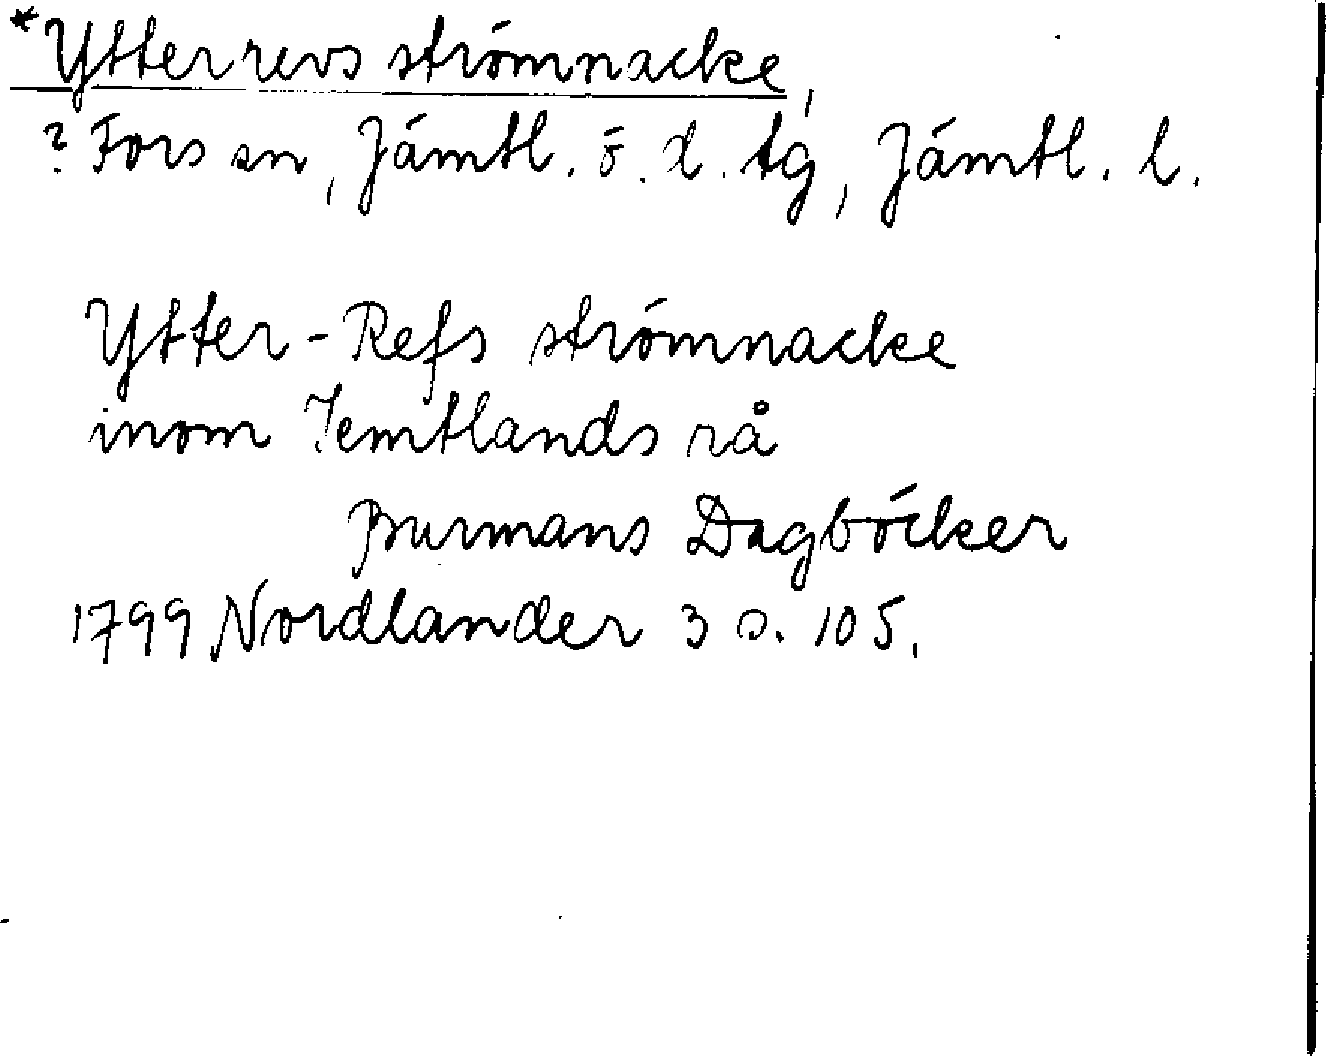 *Ytterrevs strömnacke,
? Fors sn, Jämtl. ö. d. tg, Jämtl. l.
Ytter-Refs strömnacke
inom Jemtlands rå
Burmans Dagböcker
1799 Nordlander 3 s. 105.